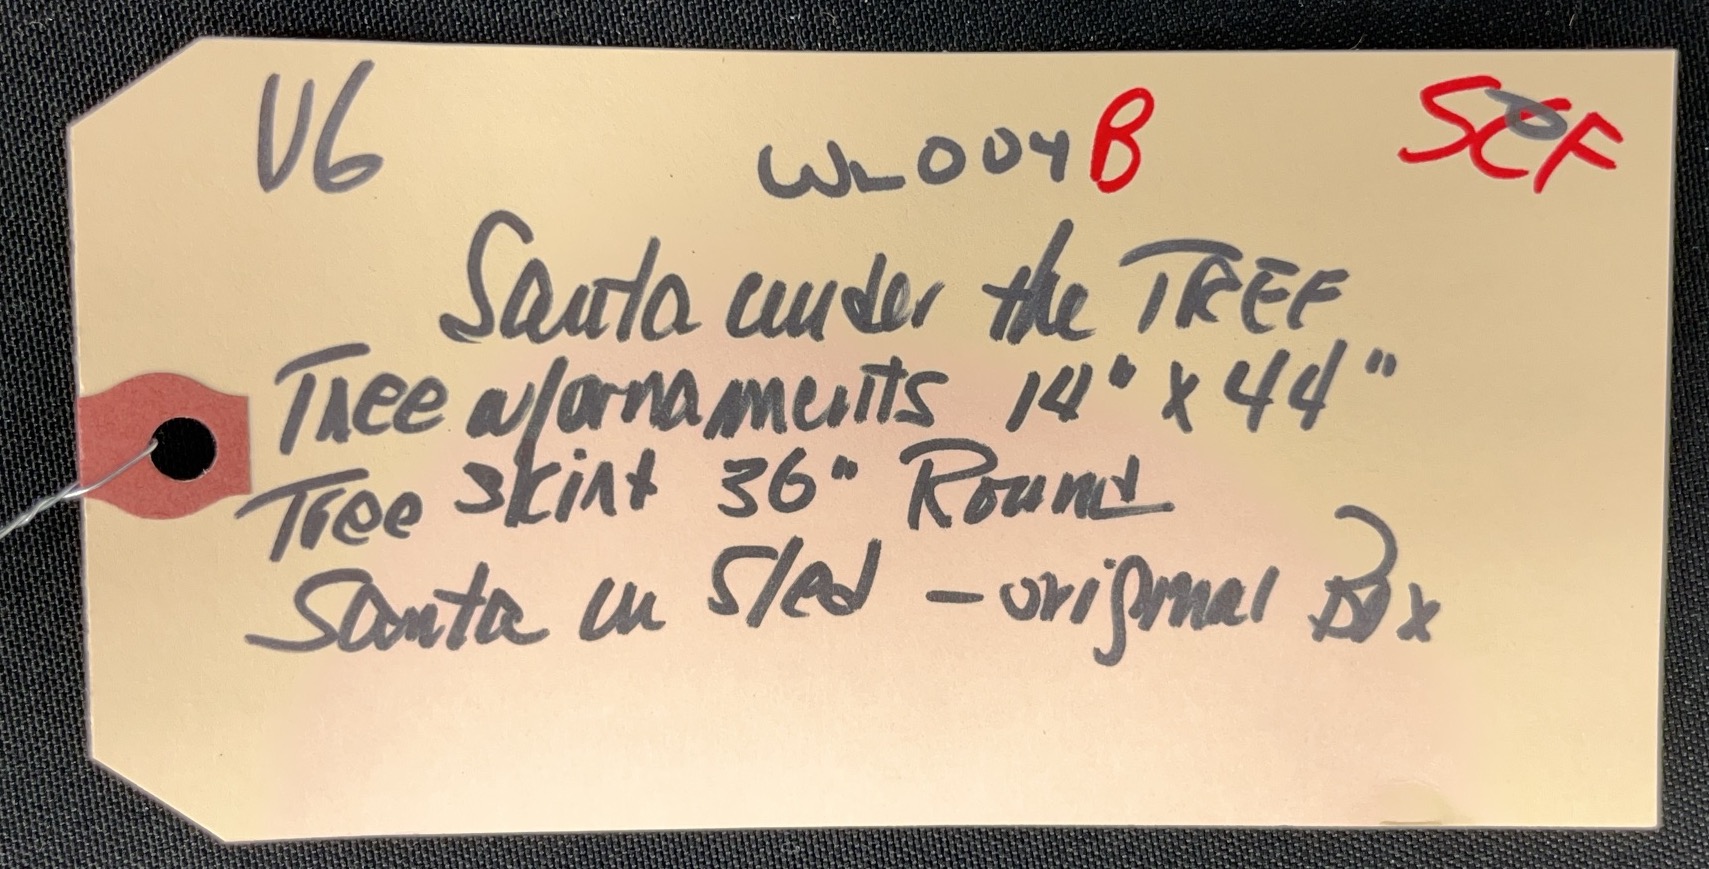 V6 WL004B SCF
Santa under the TREE
Tree w/ornaments 14" x 44"
Tree skirt 36" Round
Santa in Sled - original Box